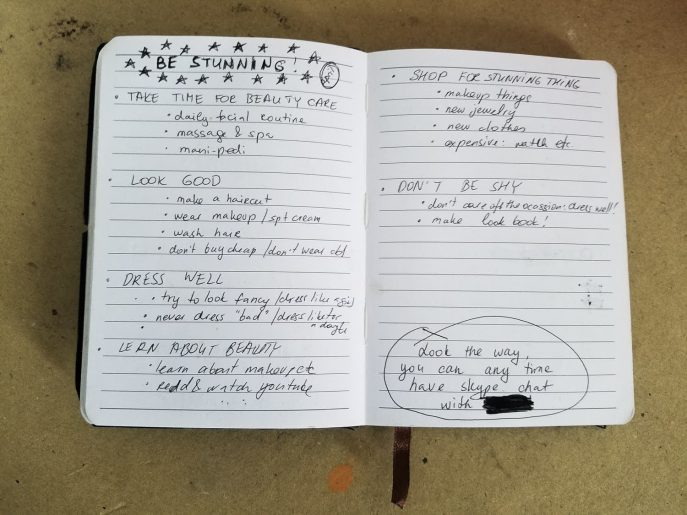 BE STUNNING!
• TAKE TIME FOR BEAUTY CARE
• daily facial routine
• massage & spa
• mani-pedi
• LOOK GOOD
• make a haircut
• wear makeup / spf cream
• wash hare
• don't buy cheap / don't wear old
• DRESS WELL
• try to look fancy / dress like
• never dress "bad" / dress like for
• LERN ABOUT BEAUTY
• learn about makeup etc
• read & watch youtube
• SHOP FOR STUNNING THING
• makeup things
• new jewelry
• new clothes
• expensive: watch etc.
• DON'T BE SHY
• don't care of the ocassion: dress well!
• make look book!
Look the way,
you can any time
have skype chat
with